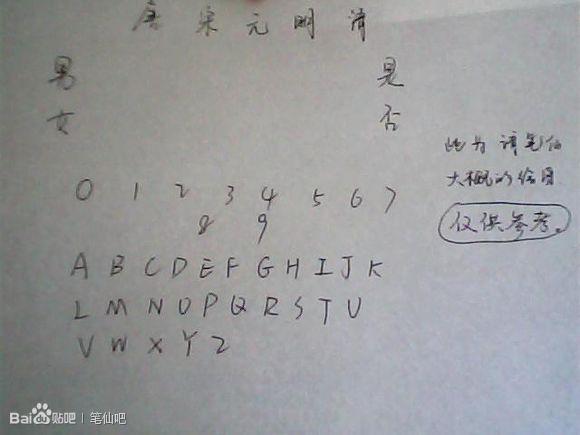 唐 宋 元 明 清
男 是
女 否
此为请笔仙
大概的绘图
仅供参考。
0 1 2 3 4 5 6 7
8 9
A B C D E F G H I J K
L M N O P Q R S T U
V W X Y Z
Bai du 贴吧 | 笔仙吧